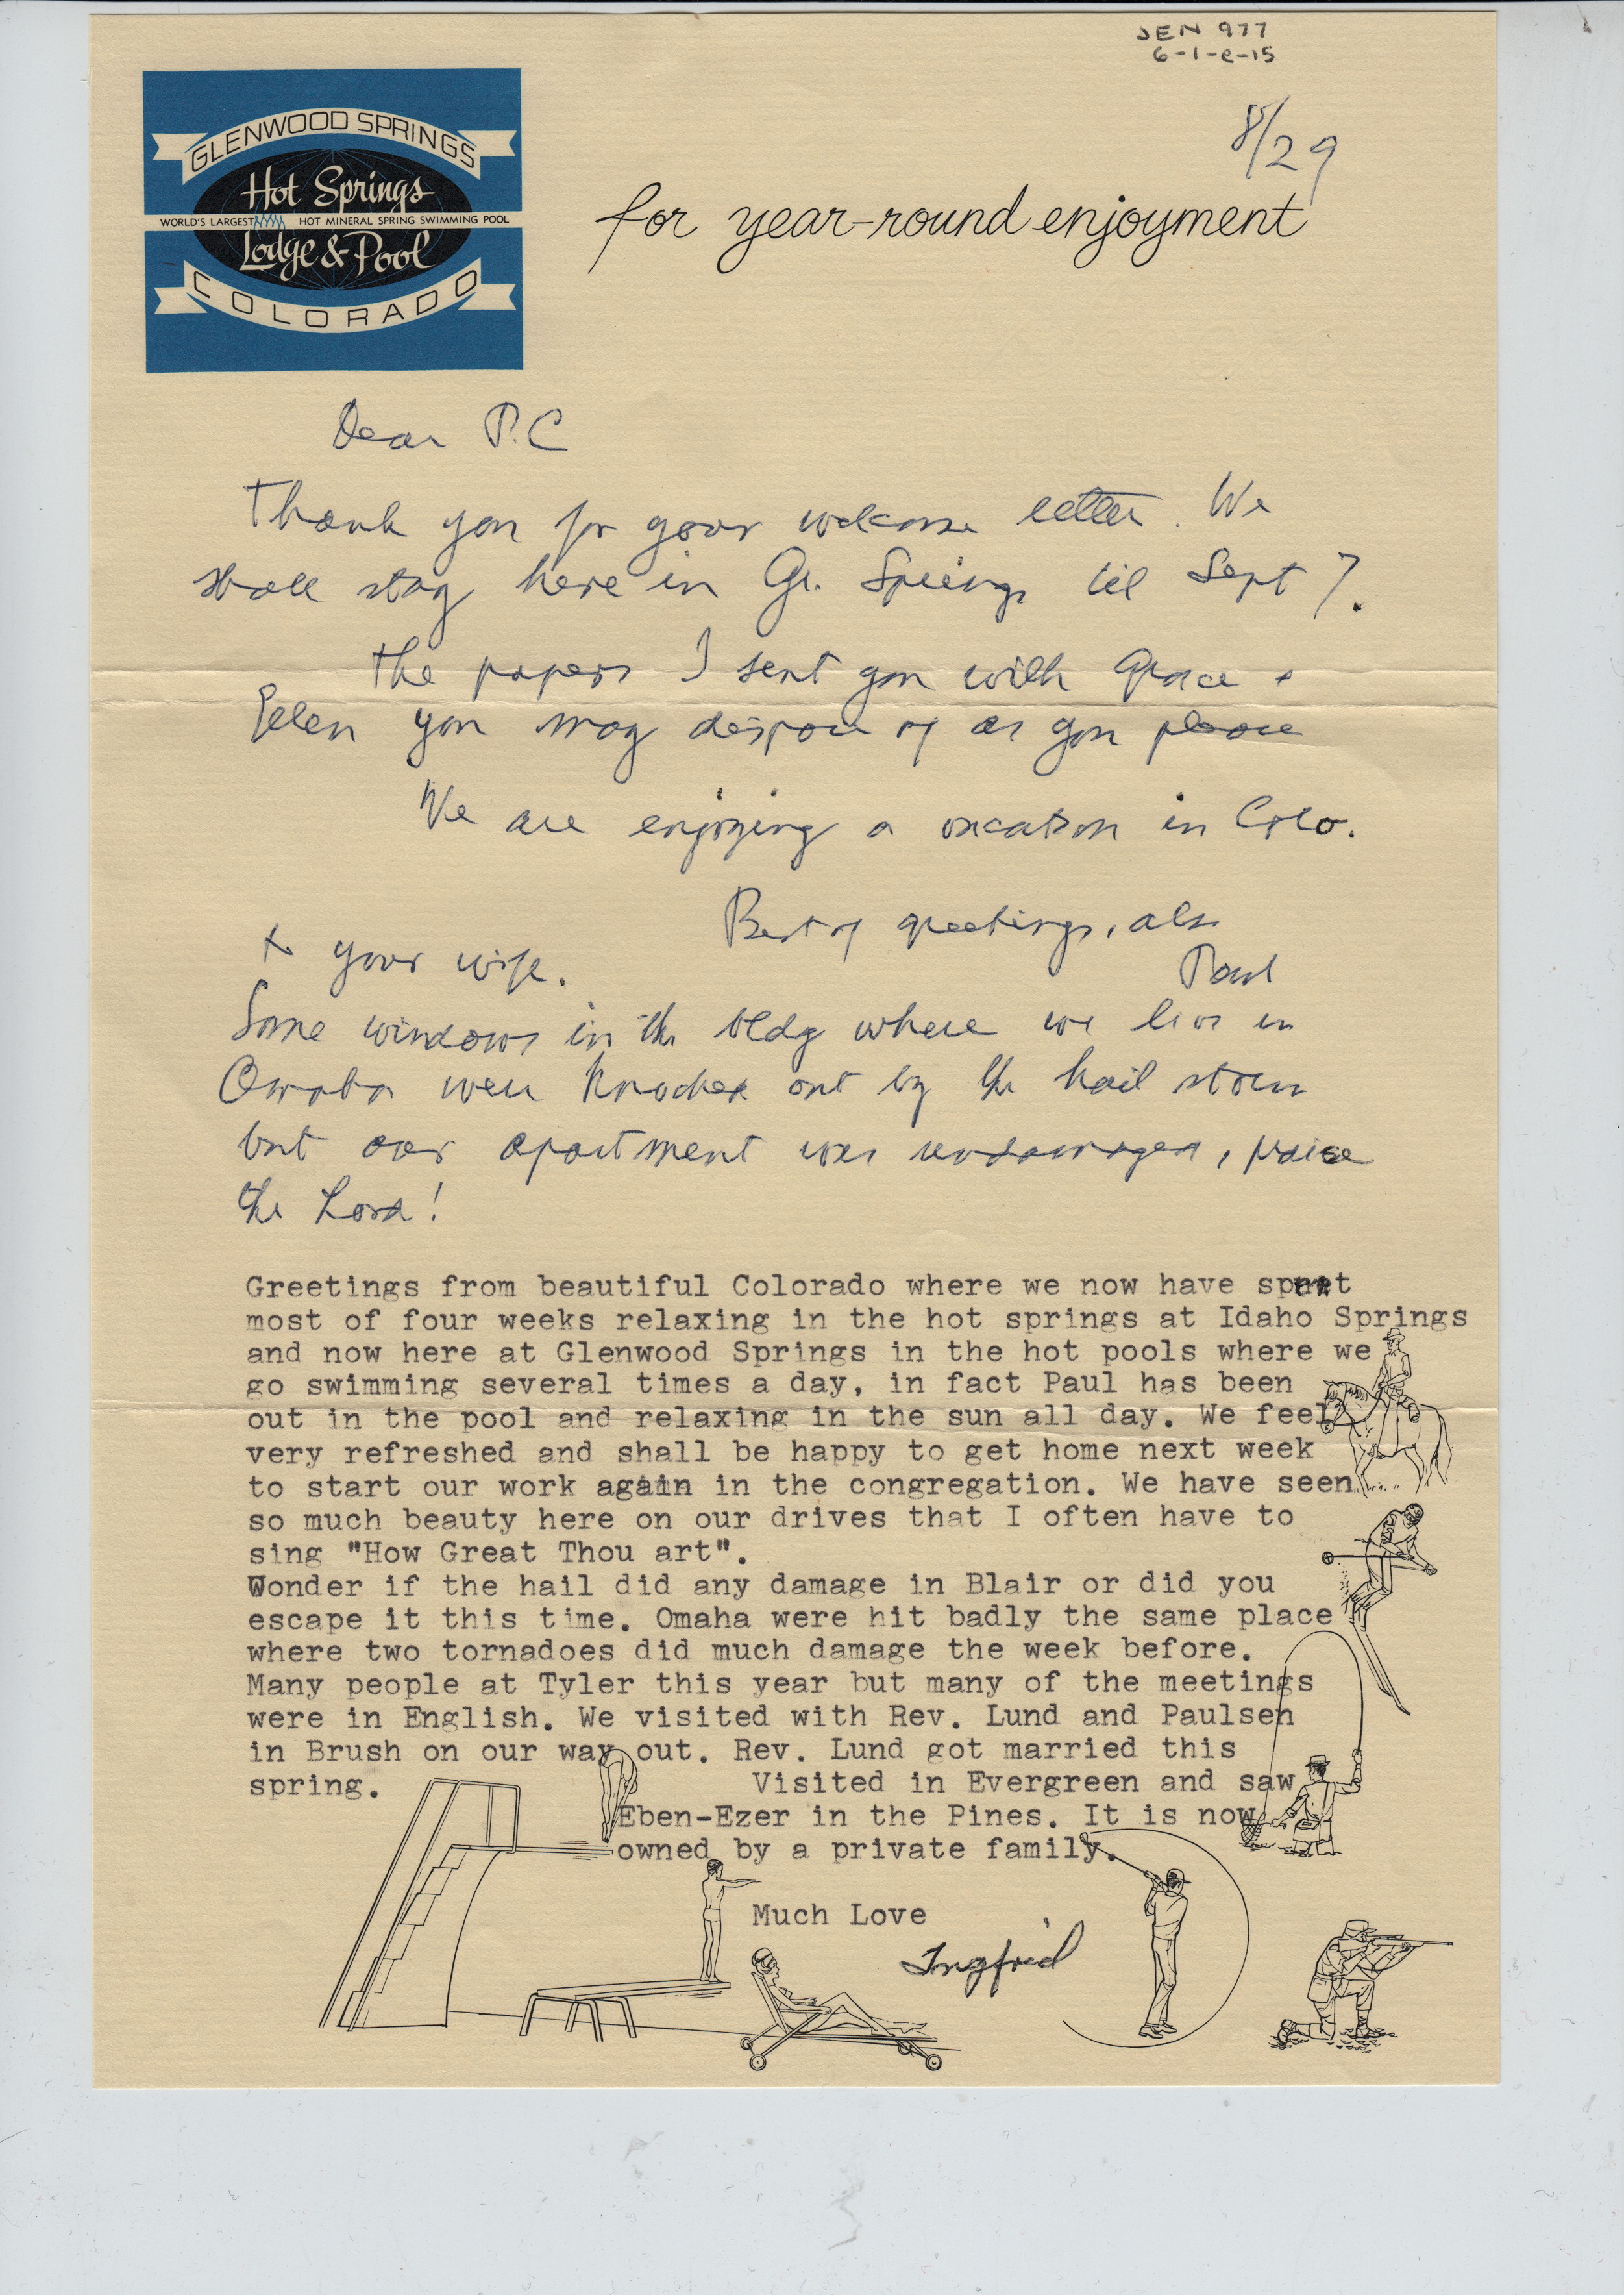 JEN 977
6-1-e-15
8/29
GLENWOOD SPRINGS
Hot Springs
WORLD'S LARGEST HOT MINERAL SPRING SWIMMING POOL
Lodge & Pool
COLORADO
for year-round enjoyment
Dear P.C
Thank you for your welcome letter. We
shall stay here in Gl. Springs til Sept 7.
the papers I sent you with Grace +
you may dispose of as you please
We are enjoying a vacation in Colo.
Best of greetings, also
to your wife.
Paul
Some windows in the bldg where we live in
Omaha were knocked out by the hail storm
but our apartment was undamaged, praise
the Lord!
Greetings from beautiful Colorado where we now have spent
most of four weeks relaxing in the hot springs at Idaho Springs
and now here at Glenwood Springs in the hot pools where we
go swimming several times a day, in fact Paul has been
out in the pool and relaxing in the sun all day. We feel
very refreshed and shall be happy to get home next week
to start our work again in the congregation. We have seen
so much beauty here on our drives that I often have to
sing "How Great Thou art".
Wonder if the hail did any damage in Blair or did you
escape it this time. Omaha were hit badly the same place
where two tornadoes did much damage the week before.
Many people at Tyler this year but many of the meetings
were in English. We visited with Rev. Lund and Paulsen
in Brush on our way out. Rev. Lund got married this
spring. Visited in Evergreen and saw
Eben-Ezer in the Pines. It is now
owned by a private family.
Much Love
Ingfrid